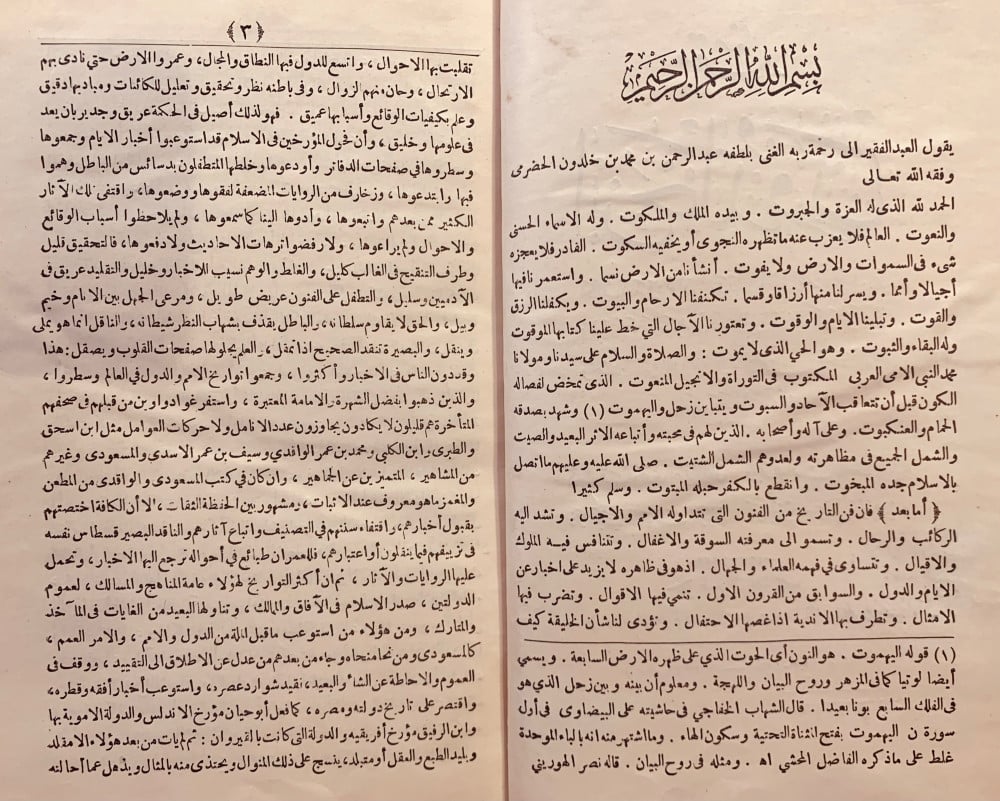 بسم الله الرحمن الرحيم
يقول العبد الفقير الى رحمة ربه الغنى بلطفه عبد الرحمن بن محمد بن خلدون الحضرمى
وفقه الله تعالى
الحمد لله الذى له العزة والجبروت . وبيده الملك والملكوت . وله الاسماء الحسنى
والنعوت . العالم فلا يعزب عنه ما تظهره النجوى أو يخفيه السكوت . القادر فلا يعجزه
شىء فى السموات والارض ولا يفوت . أنشأنا من الارض نسما . واستعمرنا فيها
أجيالا وأمما . ويسر لنا منها أرزاقا وقسما . تكنفنا الارحام والبيوت . ويكفلنا الرزق
والقوت . وتبلينا الايام والوقوت . وتعتورنا الآجال التي خط علينا كتابها الموقوت
وله البقاء والثبوت . وهو الحي الذى لا يموت : والصلاة والسلام على سيدنا ومولانا
محمد النبي الامى العربى المكتوب فى التوراة والانجيل المنعوت . الذى تمخض لفصاله
الكون قبل أن تتعاقب الآحاد والسبوت ويتباين زحل واليهموت (١) وشهد بصدقه
الحمام والعنكبوت . وعلى آله وأصحابه . الذين لهم فى محبته وأتباعه الاثر البعيد والصيت
والشمل الجميع فى مظاهرته ولعدوهم الشمل الشتيت . صلى الله عليه وعليهم ما اتصل
بالاسلام جده المبخوت . وانقطع بالكفر حبله المبتوت . وسلم كثيرا
﴿ أما بعد ﴾ فان فن التاريخ من الفنون التى تتداوله الامم والاجيال . وتشد اليه
الركائب والرحال . وتسمو الى معرفته السوقة والاغفال . وتتنافس فيه الملوك
والاقيال . وتتساوى في فهمه العلماء والجهال . اذ هو فى ظاهره لا يزيد على اخبار عن
الايام والدول . والسوابق من القرون الاول . تنمي فيها الاقوال . وتضرب فيها
الامثال . وتطرف بها الاندية اذا غصها الاحتفال . وتؤدى لنا شأن الخليقة كيف
(١) قوله اليهموت . هو النون أى الحوت الذي على ظهره الارض السابعة . ويسمي
أيضا لوتيا كما فى المزهر وروح البيان واللهجة . ومعلوم أن بينه وبين زحل الذي هو
فى الفلك السابع بونا بعيدا . قال الشهاب الخفاجي فى حاشيته على البيضاوى فى أول
سورة ن اليهموت بفتح المثناة التحتية وسكون الهاء . وما اشتهر منه انه بالباء الموحدة
غلط على ما ذكره الفاضل المحشي اه . ومثله فى روح البيان . قاله نصر الهوريني
﴿ ٣ ﴾
تقلبت بها الاحوال ، واتسع للدول فيها النطاق والمجال ، وعمروا الارض حتي نادى بهم
الارتحال ، وحان منهم الزوال ، وفى باطنه نظر وتحقيق وتعليل للكائنات ومباديها دقيق
وعلم بكيفيات الوقائع وأسبابها عميق . فهو لذلك أصيل فى الحكمة عريق وجدير بان يعد
فى علومها وخليق ، وأن فحول المؤرخين فى الاسلام قد استوعبوا أخبار الايام وجمعوها
وسطروها في صفحات الدفاتر وأودعوها وخلطها المتطفلون بدسائس من الباطل وهموا
فيها وابتدعوها ، وزخارف من الروايات المضعفة لفقوها ووضعوها، واقتفى تلك الآثار
الكثير ممن بعدهم واتبعوها ، وأدوها الينا كما سمعوها ، ولم يلاحظوا أسباب الوقائع
والاحوال ولم يراعوها ، ولا رفضوا ترهات الاحاديث ولا دفعوها، فالتحقيق قليل
وطرف التنقيح فى الغالب كليل، والغلط والوهم نسيب للاخبار وخليل والتقليد عريق فى
الآدميين وسليل، والتطفل على الفنون عريض طويل ، ومرعى الجهل بين الانام وخيم
وبيل، والحق لا يقاوم سلطانه ، والباطل يقذف بشهاب النظر شيطانه ، والناقل انما هو يملى
وينقل ، والبصيرة تنقد الصحيح اذا تمقل ، والعلم يجلو لها صفحات القلوب ويصقل : هذا
وقد دون الناس فى الاخبار وأكثروا ، وجمعوا تواريخ الامم والدول في العالم وسطروا ،
والذين ذهبوا بفضل الشهرة والامامة المعتبرة ، واستفرغوا دواوين من قبلهم فى صحفهم
المتأخرة هم قليلون لا يكادون يجاوزون عدد الانامل ولا حركات العوامل مثل ابن اسحق
والطبرى وابن الكلبي ومحمد بن عمر الواقدي وسيف بن عمر الاسدي والمسعودى وغيرهم
من المشاهير ، المتميزين عن الجماهير ، وان كان في كتب المسعودى والواقدى من المطعن
والمغمز ما هو معروف عند الاثبات ، ومشهور بين الحفظة الثقات ، الا أن الكافة اختصتهم
بقبول أخبارهم، واقتفاء سننهم في التصنيف واتباع آثارهم والناقد البصير قسطاس نفسه
فى تزييفهم فيما ينقلون أو اعتبارهم، فللعمران طبائع في أحواله ترجع اليها الاخبار، وتحمل
عليها الروايات والآثار ، ثم ان أكثر التواريخ لهؤلاء عامة المناهج والمسالك ، لعموم
الدولتين ، صدر الاسلام فى الآفاق والممالك ، وتناولها البعيد من الغايات فى المآخذ
والمتارك ، ومن هؤلاء من استوعب ما قبل الملة من الدول والامم ، والامر العمم ،
كالمسعودى ومن نحا منحاه وجاء من بعدهم من عدل عن الاطلاق الى التقييد ، ووقف فى
العموم والاحاطة عن الشأو البعيد، فقيد شوارد عصره، واستوعب أخبار أفقه وقطره،
واقتصر على تاريخ دولته ومصره ، كما فعل أبو حيان مؤرخ الاندلس والدولة الاموية بها
وابن الرفيق مؤرخ أفريقيه والدولة التى كانت بالقيروان : ثم لم يأت من بعد هؤلاء الا مقلد
وبليد الطبع والعقل أو متبلد، ينسج على ذلك المنوال ويحتذى منه بالمثال ويذهل عما أحالته